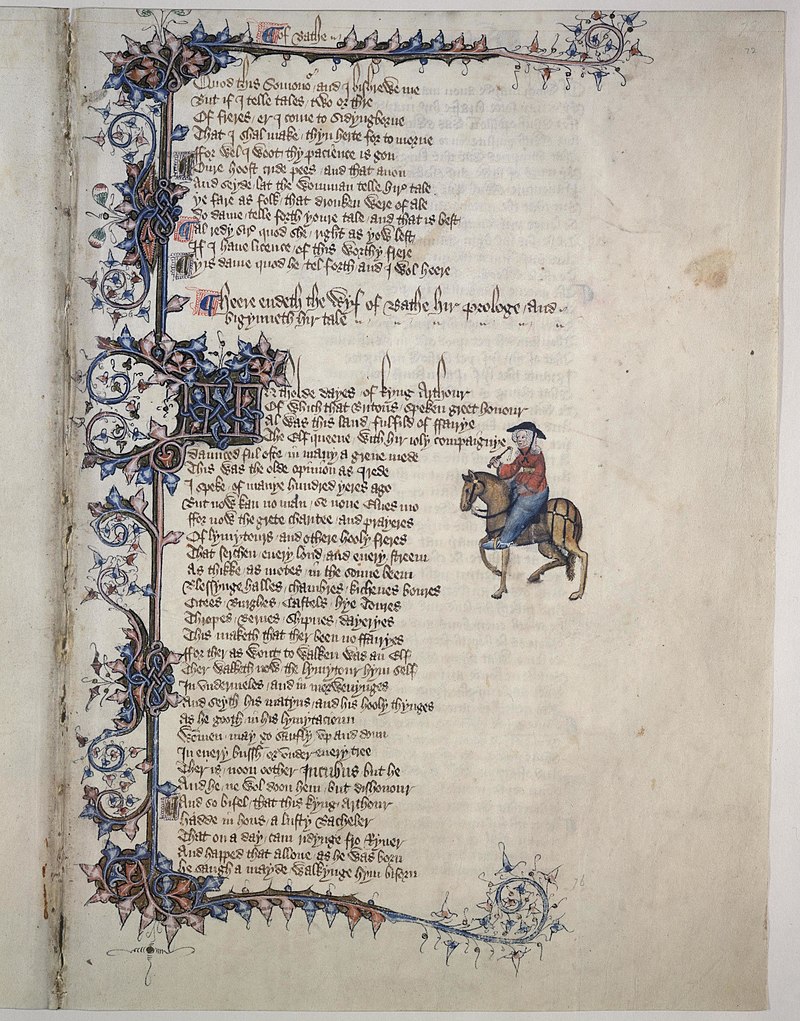 Of Bathe
72
Quod this Somono and I bishrewe me
But if I telle tales two or thre
Of freres er I come to Sidyngborne
That I shal make thyn herte for to morne
ffor wel I woot thy pacience is gon
Oure hoost cride pees and that anon
And seyde lat the womman telle hire tale
ye fare as folk that dronken were of ale
Do dame telle forth youre tale and that is best
Al redy sire quod she right as yow lest
If I haue licence of this worthy frere
yis dame quod he tel forth and I wol heere
Heere endeth the Wyf of Bathe hir prologe and
bigynneth hir tale
In tholde dayes of kyng Arthour
Of which that Britons speken greet honour
Al was this land fulfild of ffairye
The Elf queene with hir ioly compaignye
daunced ful ofte in many a grene mede
This was the olde opinion as I rede
I speke of manye hundred yeres ago
But now kan no man se none Elues mo
ffor now the grete charitee and prayeres
Of lymytours and othere hooly freres
That serchen euery lond and euery streem
As thikke as motes in the sonne beem
Blessynge halles chambres kichenes boures
Citees Burghes Castels hye Toures
Thropes Bernes Shipnes dayeryes
This maketh that ther been no ffairyes
ffor ther as wont to walken was an Elf
Ther walketh now the lymytour hym self
In vndermeles and in morwenynges
And seyth his matyns and his hooly thynges
As he gooth in his lymytacioun
Wommen may go saufly vp and doun
In euery bussh or vnder euery tree
Ther is noon oother Incubus but he
And he ne wol doon hem but dishonour
And so bifel that this kyng Arthour
hadde in hous a lusty Bacheler
That on a day cam ridynge fro Ryuer
And happed that allone as he was born
he saugh a mayde walkynge hym biforn
76